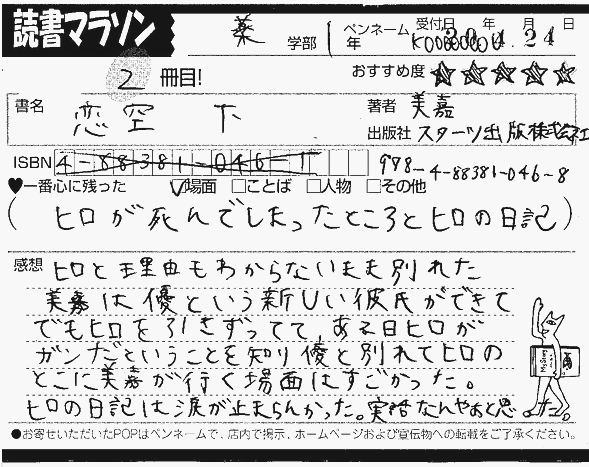 読書マラソン
薬 学部 1年 ペンネーム K
受付日 年 月 日 4.24
2 冊目!
おすすめ度 ☆☆☆☆☆
書名 恋空 下
著者 美嘉
出版社 スターツ出版株式会社
ISBN 4-88381-046-1 978-4-88381-046-8
♥一番心に残った ☑場面 □ことば □人物 □その他
(ヒロが死んでしまったところとヒロの日記)
感想 ヒロと理由もわからないまま別れた
美嘉は優という新しい彼氏ができて
でもヒロを引きずってて、ある日ヒロが
ガンだということを知り優と別れてヒロの
とこに美嘉が行く場面はすごかった。
ヒロの日記は涙が止まらんかった。実話なんやぁと思った。
●お寄せいただいたPOPはペンネームで、店内で掲示、ホームページおよび宣伝物への転載をご了承ください。